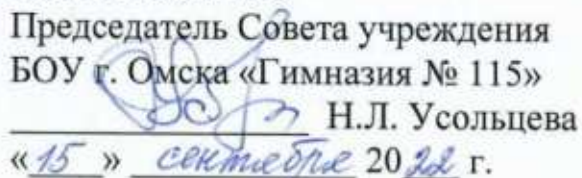 Председатель Совета учреждения
БОУ г. Омска «Гимназия № 115»
Н.Л. Усольцева
«15» сентября 2022 г.